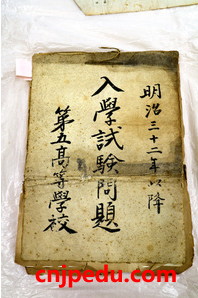 明治三十二年以降
入學試驗問題
第五高等學校
cnjpedu.com